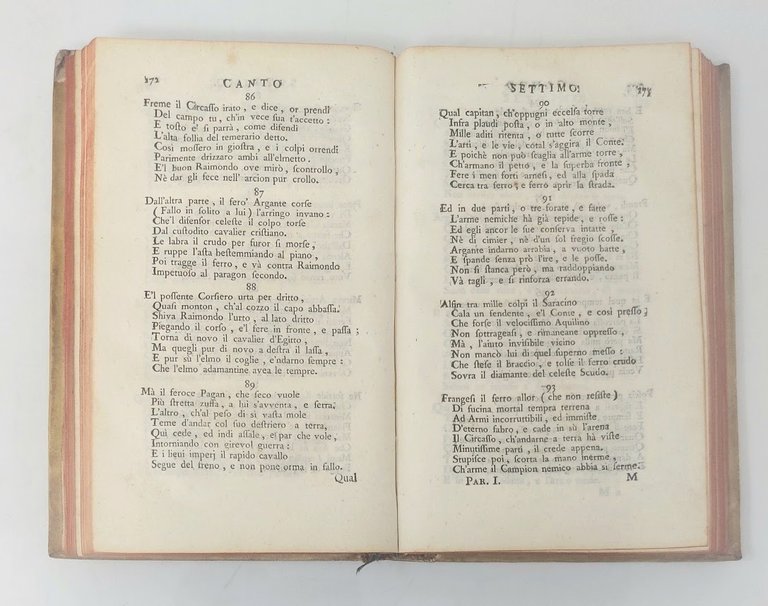 172 CANTO
86
Freme il Circasso irato, e dice, or prendi
Del campo tu, ch'in vece sua t'accetto:
E tosto e' si parrà, come difendi
L'alta follia del temerario detto.
Così mossero in giostra, e i colpi orrendi
Parimente drizzaro ambi all'elmetto.
E'l buon Raimondo ove mirò, scontrollo,
Nè dar gli fece nell'arcion pur crollo.
87
Dall'altra parte, il fero Argante corse
(Fallo in solito a lui) l'arringo invano:
Che'l difensor celeste il colpo torse
Dal custodito cavalier cristiano.
Le labra il crudo per furor si morse,
E ruppe l'asta bestemmiando al piano,
Poi tragge il ferro, e và contra Raimondo
Impetuoso al paragon secondo.
88
E'l possente Corsiero urta per dritto,
Quasi monton, ch'al cozzo il capo abbassa.
Shiva Raimondo l'urto, al lato dritto
Piegando il corso, e'l fere in fronte, e passa;
Torna di novo il cavalier d'Egitto,
Ma quegli pur di novo a destra il lassa,
E pur sù l'elmo il coglie, e'ndarno sempre:
Che l'elmo adamantine avea le tempre.
89
Mà il feroce Pagan, che seco vuole
Più stretta zuffa, a lui s'avventa, e serra.
L'altro, ch'al peso di sì vasta mole
Teme d'andar col suo destriero a terra,
Quì cede, ed indi assale, e par che vole,
Intorniando con girevol guerra:
E i lievi imperj il rapido cavallo
Segue del freno, e non pone orma in fallo.
Qual
SETTIMO.
90
Qual capitan, ch'oppugni eccelsa torre
Infra plaudi posta, o in alto monte,
Mille aditi ritenta, o tutte scorre
L'arti, e le vie, cotal s'aggira il Conte.
E poichè non può scaglia all'arme torre,
Ch'armano il petto, e la superba fronte,
Fere i men forti arnesi, ed alla spada
Cerca tra ferro, e ferro aprir la strada.
91
Ed in due parti, o tre forate, e fatte
L'arme nemiche hà già tepide, e rosse:
Ed egli ancor le sue conserva intatte,
Nè di cimier, nè d'un sol fregio scosse.
Argante indarno arrabbia, a vuoto batte,
E spande senza prò l'ire, e le posse.
Non si stanca però, ma raddoppiando
Và tagli, e si rinforza errando.
92
Alfin tra mille colpi il Saracino
Cala un fendente, e'l Conte, e così presso;
Che forse il velocissimo Aquilino
Non sottrageasi, e rimaneane oppresso,
Mà, l'aiuto invisibile vicino
Non mancò lui di quel superno messo:
Che stese il braccio, e tolse il ferro crudo
Sovra il diamante del celeste Scudo.
93
Frangesi il ferro allor (che non resiste)
Di fucina mortal tempra terrena
Ad Armi incorruttibili, ed immiste
D'eterno fabro, e cade in sù l'arena
Il Circasso, ch'andarne a terra hà viste
Minutissime parti, il crede appena.
Stupisce poi, scorta la mano inerme,
Ch'arme il Campion nemico abbia sì ferme.
PAR. I. M